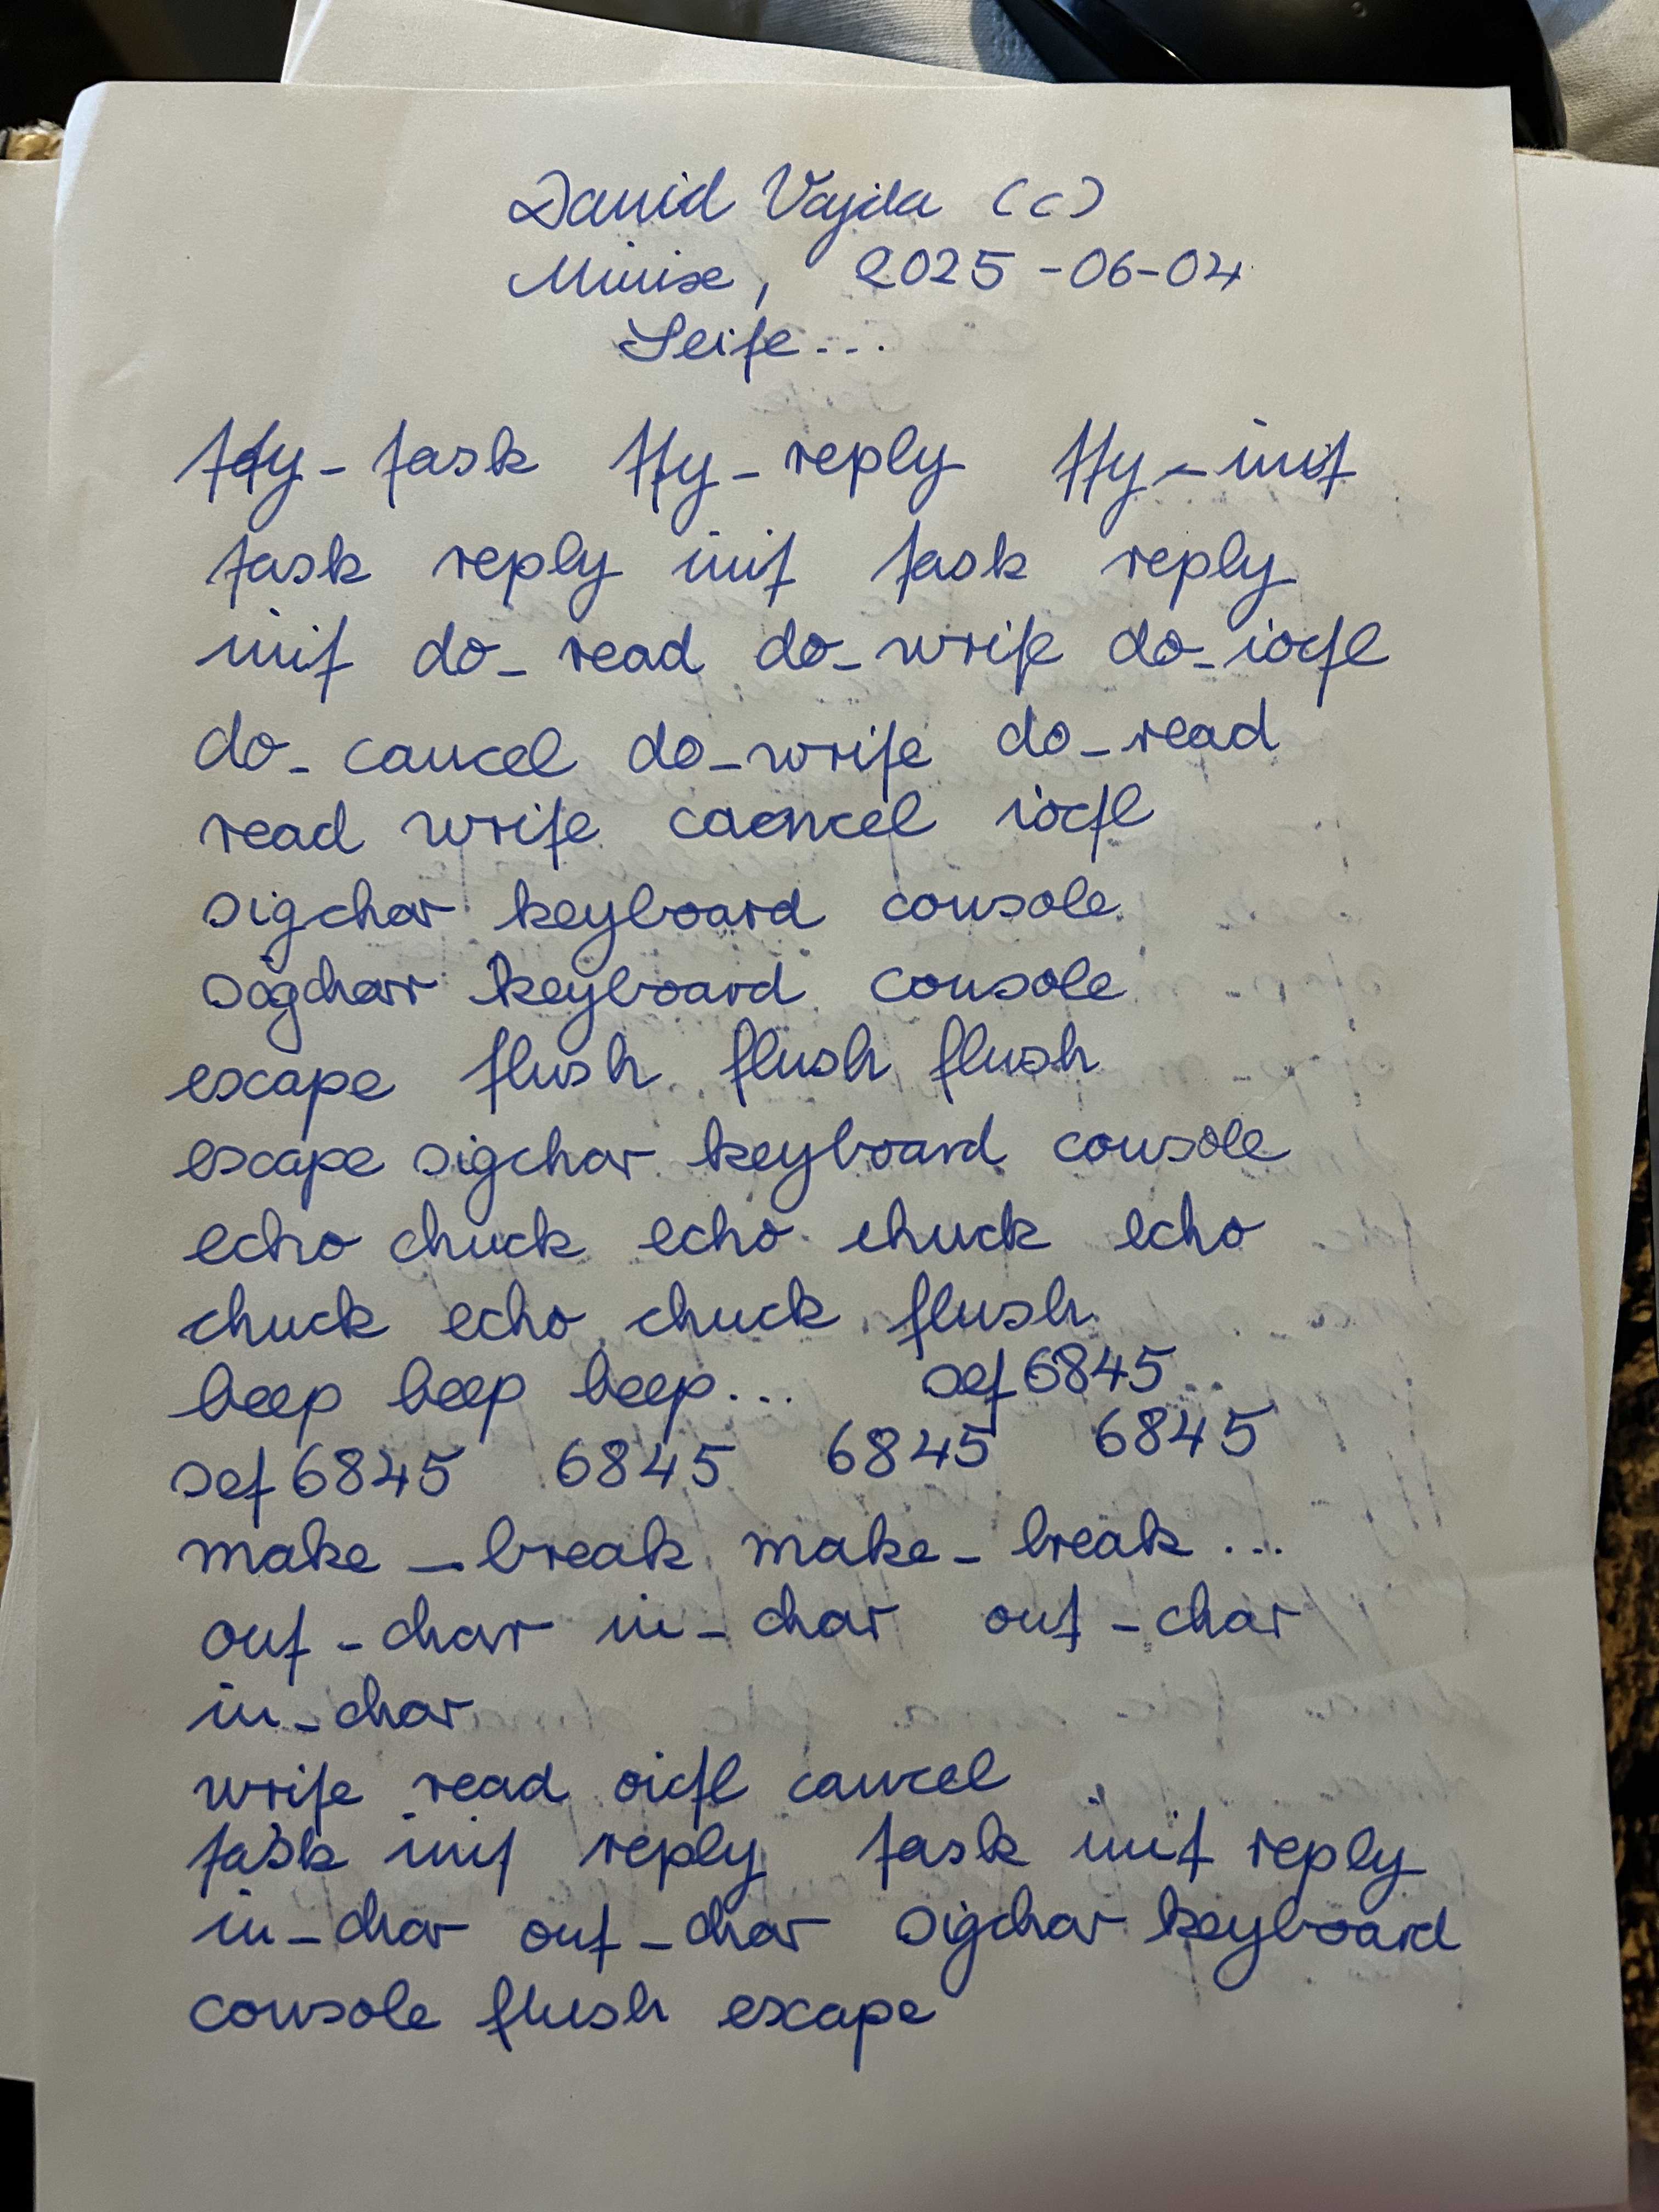 David Vajda (c)
Minix, 2025-06-04
Seife...
tty_task tty_reply tty_init
task reply init task reply
init do_read do_write do_ioctl
do_cancel do_write do_read
read write cancel ioctl
sigchar keyboard console
sigchar keyboard console
escape flush flush flush
escape sigchar keyboard console
echo chuck echo chuck echo
chuck echo chuck flush
beep beep beep... set6845
set6845 6845 6845 6845
make_break make_break...
out_char in_char out_char
in_char
write read oictl cancel
task init reply task init reply
in_char out_char sigchar keyboard
console flush escape